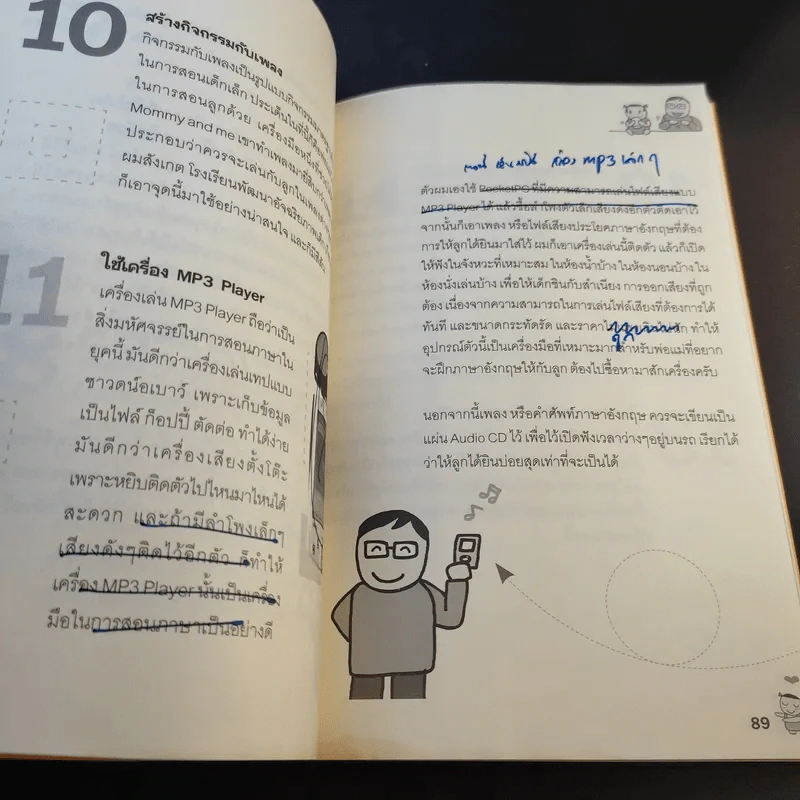 10
สร้างกิจกรรมกับเพลง
กิจกรรมกับเพลงเป็นรูปแบบกิจกรรม
ในการสอนเด็กเล็ก ประเด็นในที่นี้คือ
ในการสอนลูกด้วย เครื่องมือหนึ่งที่
Mommy and me เขาทำเพลงมาซี
ประกอบว่าควรจะเล่นกับลูกในเพลง
ผมสังเกต โรงเรียนพัฒนาอัจฉริยภาพเด็ก
ก็เอาจุดนี้มาใช้อย่างน่าสนใจ และก็มี
11
ใช้เครื่อง MP3 Player
เครื่องเล่น MP3 Player ถือว่าเป็น
สิ่งมหัศจรรย์ในการสอนภาษาใน
ยุคนี้ มันดีกว่าเครื่องเล่นเทปแบบ
ซาวดน์อเบาว์ เพราะเก็บข้อมูล
เป็นไฟล์ ก็อปปี้ ตัดต่อ ทำได้ง่าย
มันดีกว่าเครื่องเสียงตั้งโต๊ะ
เพราะหยิบติดตัวไปไหนมาไหนได้
สะดวก และถ้ามีลำโพงเล็กๆ
เสียงดังๆติดไว้อีกตัว ก็ทำให้
เครื่อง MP3 Player นั้นเป็นเครื่อง
มือในการสอนภาษาเป็นอย่างดี
mp3 เล็กๆ
ตัวผมเองใช้ PocketPC ที่มีความสามารถเล่นไฟล์เสียงแบบ
MP3 Player ได้ แล้วซื้อลำโพงตัวเล็กเสียงดังอีกตัวติดเอาไว้
จากนั้นก็เอาเพลง หรือไฟล์เสียงประโยคภาษาอังกฤษที่ต้อง
การให้ลูกได้ยินมาใส่ไว้ ผมก็เอาเครื่องเล่นนี้ติดตัว แล้วก็เปิด
ให้ฟังในจังหวะที่เหมาะสม ในห้องน้ำบ้าง ในห้องนอนบ้าง ใน
ห้องนั่งเล่นบ้าง เพื่อให้เด็กชินกับสำเนียง การออกเสียงที่ถูก
ต้อง เนื่องจากความสามารถในการเล่นไฟล์เสียงที่ต้องการได้
ทันที และขนาดกระทัดรัด และราคา ทำให้
อุปกรณ์ตัวนี้เป็นเครื่องมือที่เหมาะมากสำหรับพ่อแม่ที่อยาก
จะฝึกภาษาอังกฤษให้กับลูก ต้องไปซื้อหามาสักเครื่องครับ
นอกจากนี้เพลง หรือคำศัพท์ภาษาอังกฤษ ควรจะเขียนเป็น
แผ่น Audio CD ไว้ เพื่อไว้เปิดฟังเวลาว่างๆอยู่บนรถ เรียกได้
ว่าให้ลูกได้ยินบ่อยสุดเท่าที่จะเป็นได้
89